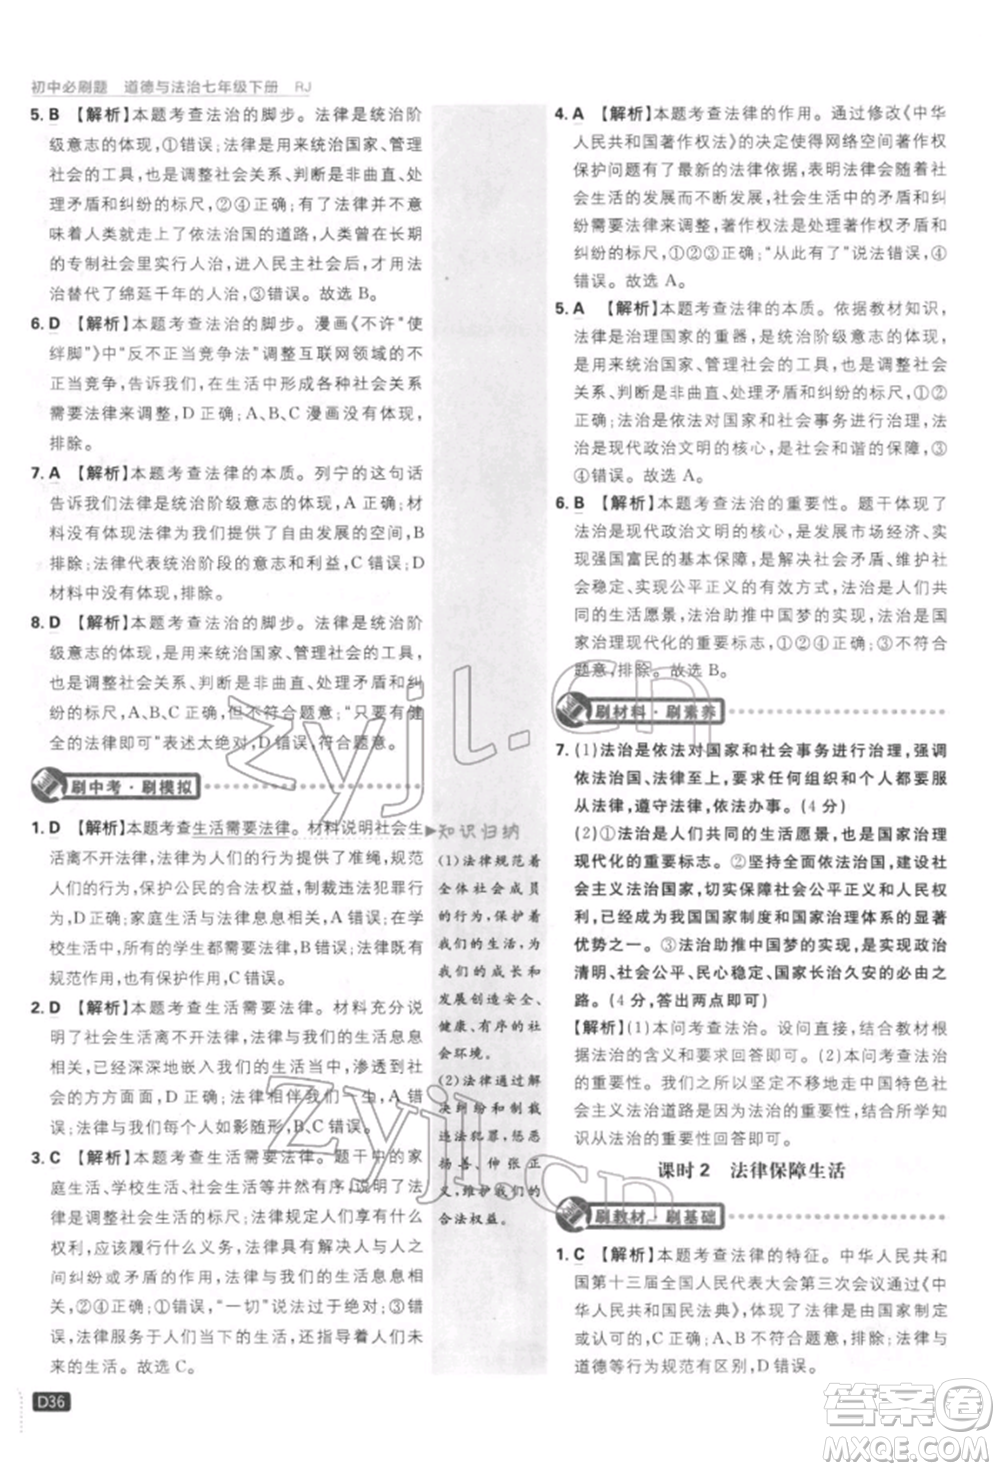 初中必刷题 道德与法治七年级下册 RJ
5. B 【解析】本题考查法治的脚步。法律是统治阶
级意志的体现,①错误;法律是用来统治国家、管理
社会的工具,也是调整社会关系、判断是非曲直、处
理矛盾和纠纷的标尺,②④正确;法治的形成意
味着人类走上依法治国的道路,人类曾在长期
的专制社会里实行人治,进入民主社会后,用法
治替代了绵延千年的人治,③错误。故选 B。
6. D 【解析】本题考查法治的脚步。漫画《不许“使
绊脚”》中“反不正当竞争法”调整互联网领域的不
正当竞争,告诉我们,在生活中形成各种社会关系
需要法律来调整,D 正确;A、B、C 漫画没有体现,
排除。
7. A 【解析】本题考查法律的本质。列宁的这句话
告诉我们法律是统治阶级意志的体现,A 正确;材
料没有体现法律为我们提供了自由发展的空间,B
排除;法律代表统治阶段的意志和利益,C 错误;D
材料中没有体现,排除。
8. D 【解析】本题考查法治的脚步。法律是统治阶
级意志的体现,是用来统治国家、管理社会的工具,
也是调整社会关系、判断是非曲直、处理矛盾和纠纷
的标尺,A、B、C 正确,但不符合题意;“只要有健
全的法律就可以”表述太绝对,D 错误,符合题意。
刷中考·刷模拟
1. D 【解析】本题考查生活需要法律。材料说明社会生
活离不开法律,法律为人们的行为提供了准绳,规范
人们的行为,保护公民的合法权益,制裁违法犯罪行
为,D 正确;家庭生活与法律息息相关,A 错误;在学
校生活中,所有的学生都受法律保护,B 错误;法律既有
规范作用,也有保护作用,C 错误。
2. D 【解析】本题考查生活需要法律。材料充分说
明了社会生活离不开法律,法律与我们的生活息息
相关,已经深深地嵌入我们的生活之中,渗透到社
会的方方面面,D 正确;A、B、C 错误,在我们的生活
中,法律与每个人都如影随形,相伴一生。
3. C 【解析】本题考查生活需要法律。题干中的家
庭生活、学校生活、社会生活都与法律息息相关,法
律是规范社会生活的标尺;法律规定人们享有什么
权利,应该履行什么义务,具有解决人与人之
间纠纷或矛盾的作用,法律是由国家强制力保证实
施的,②④正确;①错误,“一切”说法太绝对;③错
误,法律服务于人们当下的生活,又指引着人们未
来的生活。故选 C。
D36
知识归纳
(1)法律规范着
全体社会成员
的行为,保护着
我们的生活,为
我们的成长和
发展创造安全、
健康、有序的社
会环境。
(2)法律通过解
决纠纷和制裁
违法犯罪,惩恶
扬善、伸张正
义,维护我们的
合法权益。
4. A 【解析】本题考查法律的作用。通过修改《中华
人民共和国著作权法》的决定使得网络空间著作权
保护问题有了最新的法律依据,表明法律会随着
社会生活的发展而不断发展,著作权的发展和矛
盾需要法律来调整,著作权法是处理著作权矛盾和
纠纷的标尺,①②正确;“大大高于”说法错误,③
错误;④错误。故选 A。
5. A 【解析】本题考查法律的本质。依据教材知识,
法律是治理国家的重器,是统治阶级意志的体现,
是用来统治国家、管理社会的工具,是调整社会关
系、判断是非曲直、处理矛盾和纠纷的标尺,①②
正确;法治是依法对国家和社会事务进行治理,法
治是现代政治文明的核心,是社会和谐的保障,③
④错误。故选 A。
6. B 【解析】本题考查法治的重要性。题干体现了
法治是现代政治文明的核心,是发展市场经济、实
现强国富民的基本保障,是解决社会矛盾、维护社
会稳定、实现公平正义的有效方式,法治是人们共
同的生活愿景,助推中国梦的实现,法治是实现国
家治理现代化的重要标志,①②④正确;③不符合
题意,排除。故选 B。
刷材料·刷素养
7. (1)法治是依法对国家和社会事务进行治理,强调
依法治国、法律至上,要求任何组织和个人都要服
从法律,遵守法律,依法办事。(4 分)
(2)①法治是人们共同的生活愿景,是国家治理
现代化的标志。②坚持全面依法治国,建设社
会主义法治国家,切实保障社会公平正义和人民权
利,已经成为我国国家制度和国家治理体系的显著
优势之一。③法治助推中国梦的实现,是实现政治
清明、社会公平、民心稳定、国家长治久安的必由之
路。(4 分,答出两点即可)
【解析】(1)本问考查法治。设问直接,结合教材根据
法治的含义和要求回答即可。(2)本问考查法治
的重要性。为什么要坚定不移地走中国特色社会
主义法治道路是因为法治的重要性,结合所学知
识从法治的重要性回答即可。
课时 2 法律保障生活
刷教材·刷基础
1. C 【解析】本题考查法律的特征。中华人民共和
国第十三届全国人民代表大会第三次会议通过《中
华人民共和国民法典》,体现了法律是由国家制定
或认可的,C 正确;A、B 不符合题意,排除;法律与
道德等行为规范有区别,D 错误。
zyjl.cn
zyjl.cn
答案圈
MXQE.COM